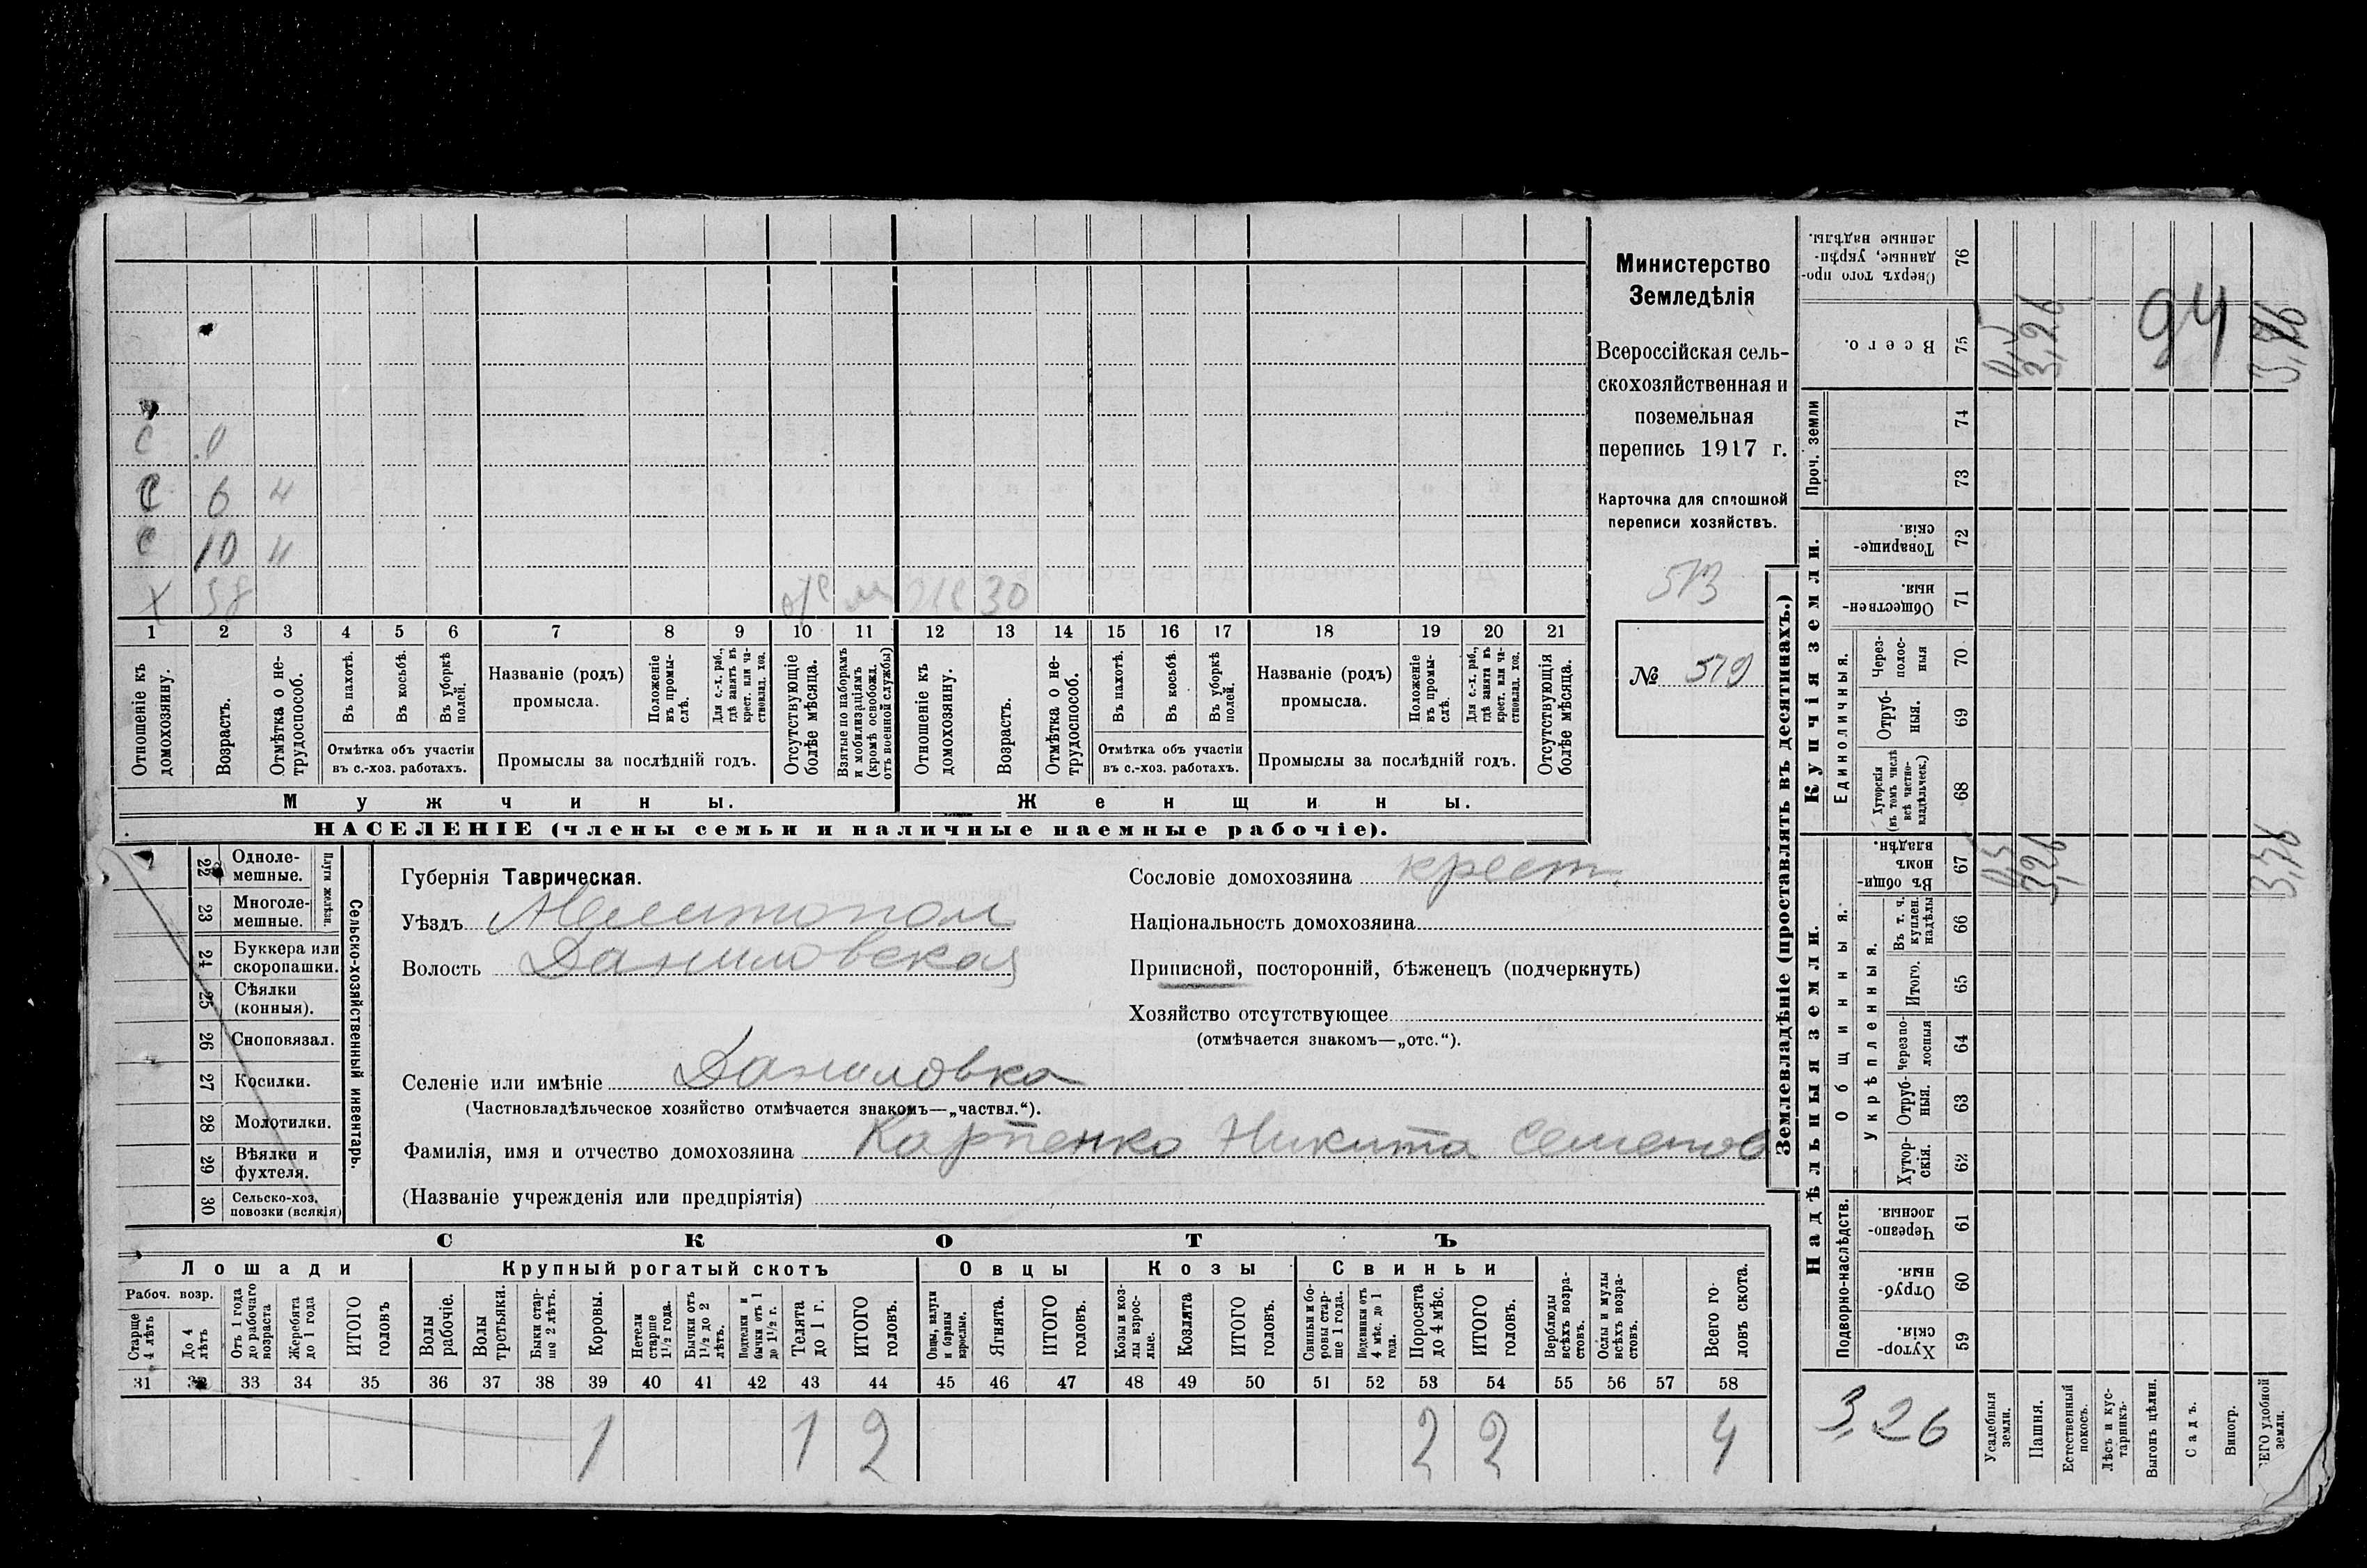 С 0
С 6 н
С 10 н
Х 38 ж 30
1 2 3 4 5 6 7 8 9 10 11 12 13 14 15 16 17 18 19 20 21
Отношеніе къ домохозяину.
Возрастъ.
Отмѣтка о не-трудоспособ.
Въ пахотѣ.
Въ косьбѣ.
Въ уборкѣ полей.
Отмѣтка объ участіи
въ с.-хоз. работахъ.
Названіе (родъ)
промысла.
Положеніе въ промы-слѣ.
Для с.-х. раб., гдѣ занятъ въ крест. или ча-стновлад. хоз.
Промыслы за послѣдній годъ.
Отсутствующіе болѣе мѣсяца.
Взятые по наборамъ и мобилизаціямъ (кромѣ освобожд. отъ военной службы)
Отношеніе къ домохозяину.
Возрастъ.
Отмѣтка о не-трудоспособ.
Въ пахотѣ.
Въ косьбѣ.
Въ уборкѣ полей.
Отмѣтка объ участіи
въ с.-хоз. работахъ.
Названіе (родъ)
промысла.
Положеніе въ промы-слѣ.
Для с.-х. раб., гдѣ занята въ крест. или ча-стновлад. хоз.
Промыслы за послѣдній годъ.
Отсутствующія болѣе мѣсяца.
Мужчины.
Женщины.
НАСЕЛЕНІЕ (члены семьи и наличные наемные рабочіе).
Министерство
Земледѣлія
Всероссійская сель-
скохозяйственная и
поземельная
перепись 1917 г.
Карточка для сплошной
переписи хозяйствъ.
513
№ 519
22 Однолемешные.
23 Многолемешные.
Плуги желѣзн.
24 Буккера или скоропашки.
25 Сѣялки (конныя).
26 Сноповязал.
27 Косилки.
28 Молотилки.
29 Вѣялки и фухтеля.
30 Сельско-хоз. повозки (всякія)
Сельско-хозяйственный инвентарь.
Губернія Таврическая.
Уѣздъ Мелитопол
Волость Даниловская
Селеніе или имѣніе Даниловка
(Частновладѣльческое хозяйство отмѣчается знакомъ—„частвл.“).
Фамилія, имя и отчество домохозяина Карпенко Никита Семенов
(Названіе учрежденія или предпріятія)
Сословіе домохозяина крест.
Національность домохозяина
Приписной, посторонній, бѣженецъ (подчеркнуть)
Хозяйство отсутствующее
(отмѣчается знакомъ—„отс.“).
СКОТЪ
Лошади
Крупный рогатый скотъ
Овцы
Козы
Свиньи
Рабоч. возр.
Старше 4 лѣтъ
До 4 лѣтъ
Отъ 1 года до рабочаго возраста
Жеребята до 1 года
ИТОГО головъ
Волы рабочіе.
Волы третьяки.
Быки стар-ше 2 лѣтъ.
Коровы.
Нетели старше 1½ года.
Бычки отъ 1½ до 2 лѣтъ.
Подтелки и бычки отъ 1 до 1½ г.
Телята до 1 г.
ИТОГО головъ.
Овцы, валухи и бараны взрослые.
Ягнята.
ИТОГО головъ.
Козы и коз-лы взрос-лые.
Козлята
ИТОГО головъ.
Свиньи и бо-ровы стар-ше 1 года.
Подсвинки отъ 4 мѣс. до 1 года.
Поросята до 4 мѣс.
ИТОГО головъ.
Верблюды всѣхъ возра-стовъ.
Ослы и мулы всѣхъ возра-стовъ.
Всего го-ловъ скота.
31 32 33 34 35 36 37 38 39 40 41 42 43 44 45 46 47 48 49 50 51 52 53 54 55 56 57 58
1 1 2 2 2 4
Землевладѣніе (проставлять въ десятинахъ.)
Надѣльныя земли.
Купчія земли.
Проч. земли
Подворно-наслѣдств.
Общинныя.
Укрѣпленныя.
Единоличныя.
Сверхъ того про-данные, укрѣп-ленные надѣлы. 76
Всего. 75 4,5 3,26 94
74
73
Товарище-скія. 72
Обществен-ныя. 71
Через-полос-ныя 70
Отруб-ныя. 69
Хуторскія (въ томъ числѣ всѣ частно-владѣльческ.) 68
Въ общин-номъ владѣн. 67 3,26
Въ т. ч. куплен. надѣлы 66
Итого. 65
Черезпо-лосныя 64
Отруб-ныя. 63
Хутор-скія. 62
Черезпо-лосныя. 61
Отруб-ныя. 60
Хутор-скія. 59
3,26
Усадебныя земли.
Пашня.
Естественный покосъ.
Лѣсъ и кус-тарникъ.
Выгонъ цѣлин.
Садъ.
Виногр.
ЕГО удобной земли.